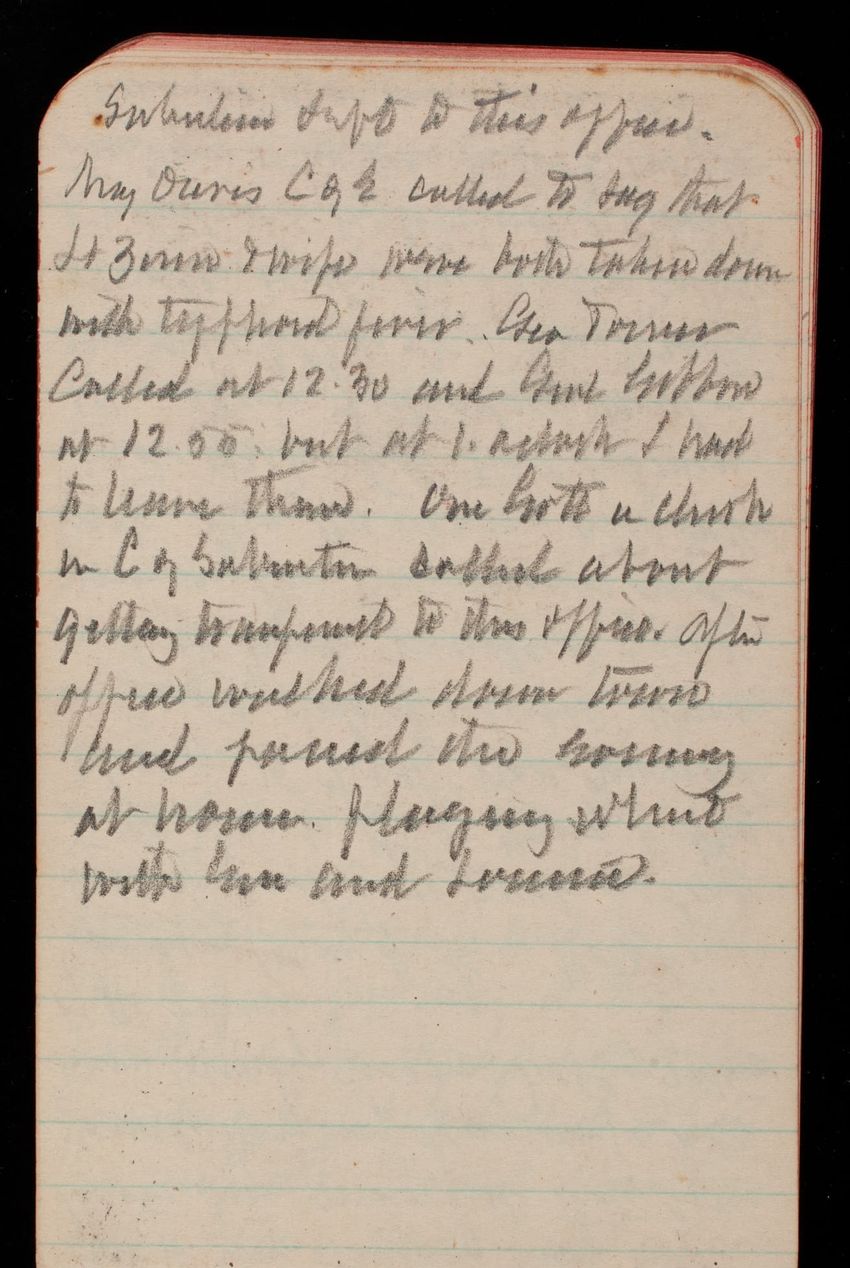 Subsistence Dept to this office.
Maj Davis C of E called to say that
Lt Zinn & wife were both taken down
with typhoid fever. Geo Turner
Called at 12.30 and Genl Gibbon
at 12.55. but at 1. oclock I had
to leave them. One Gott a clerk
in C of Subsisten called about
getting transferred to this office. After
office walked down town
and found the
at home. playing whist
with and